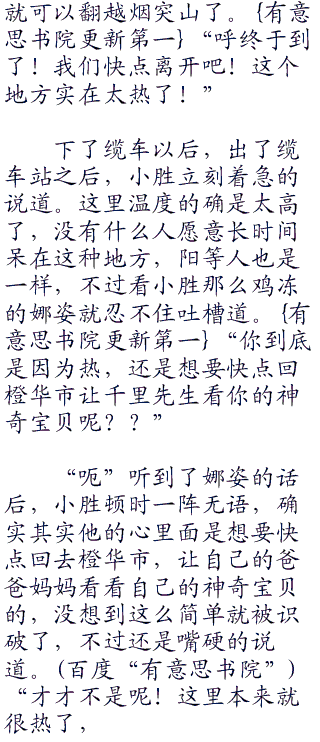 就可以翻越烟突山了。{有意
思书院更新第一}“呼终于到
了！我们快点离开吧！这个
地方实在太热了！”
下了缆车以后，出了缆
车站之后，小胜立刻着急的
说道。这里温度的确是太高
了，没有什么人愿意长时间
呆在这种地方，阳等人也是
一样，不过看小胜那么鸡冻
的娜姿就忍不住吐槽道。{有
意思书院更新第一}“你到底
是因为热，还是想要快点回
橙华市让千里先生看你的神
奇宝贝呢？？”
“呃”听到了娜姿的话
后，小胜顿时一阵无语，确
实其实他的心里面是想要快
点回去橙华市，让自己的爸
爸妈妈看看自己的神奇宝贝
的，没想到这么简单就被识
破了，不过还是嘴硬的说
道。(百度“有意思书院”)
“才才不是呢！这里本来就
很热了，